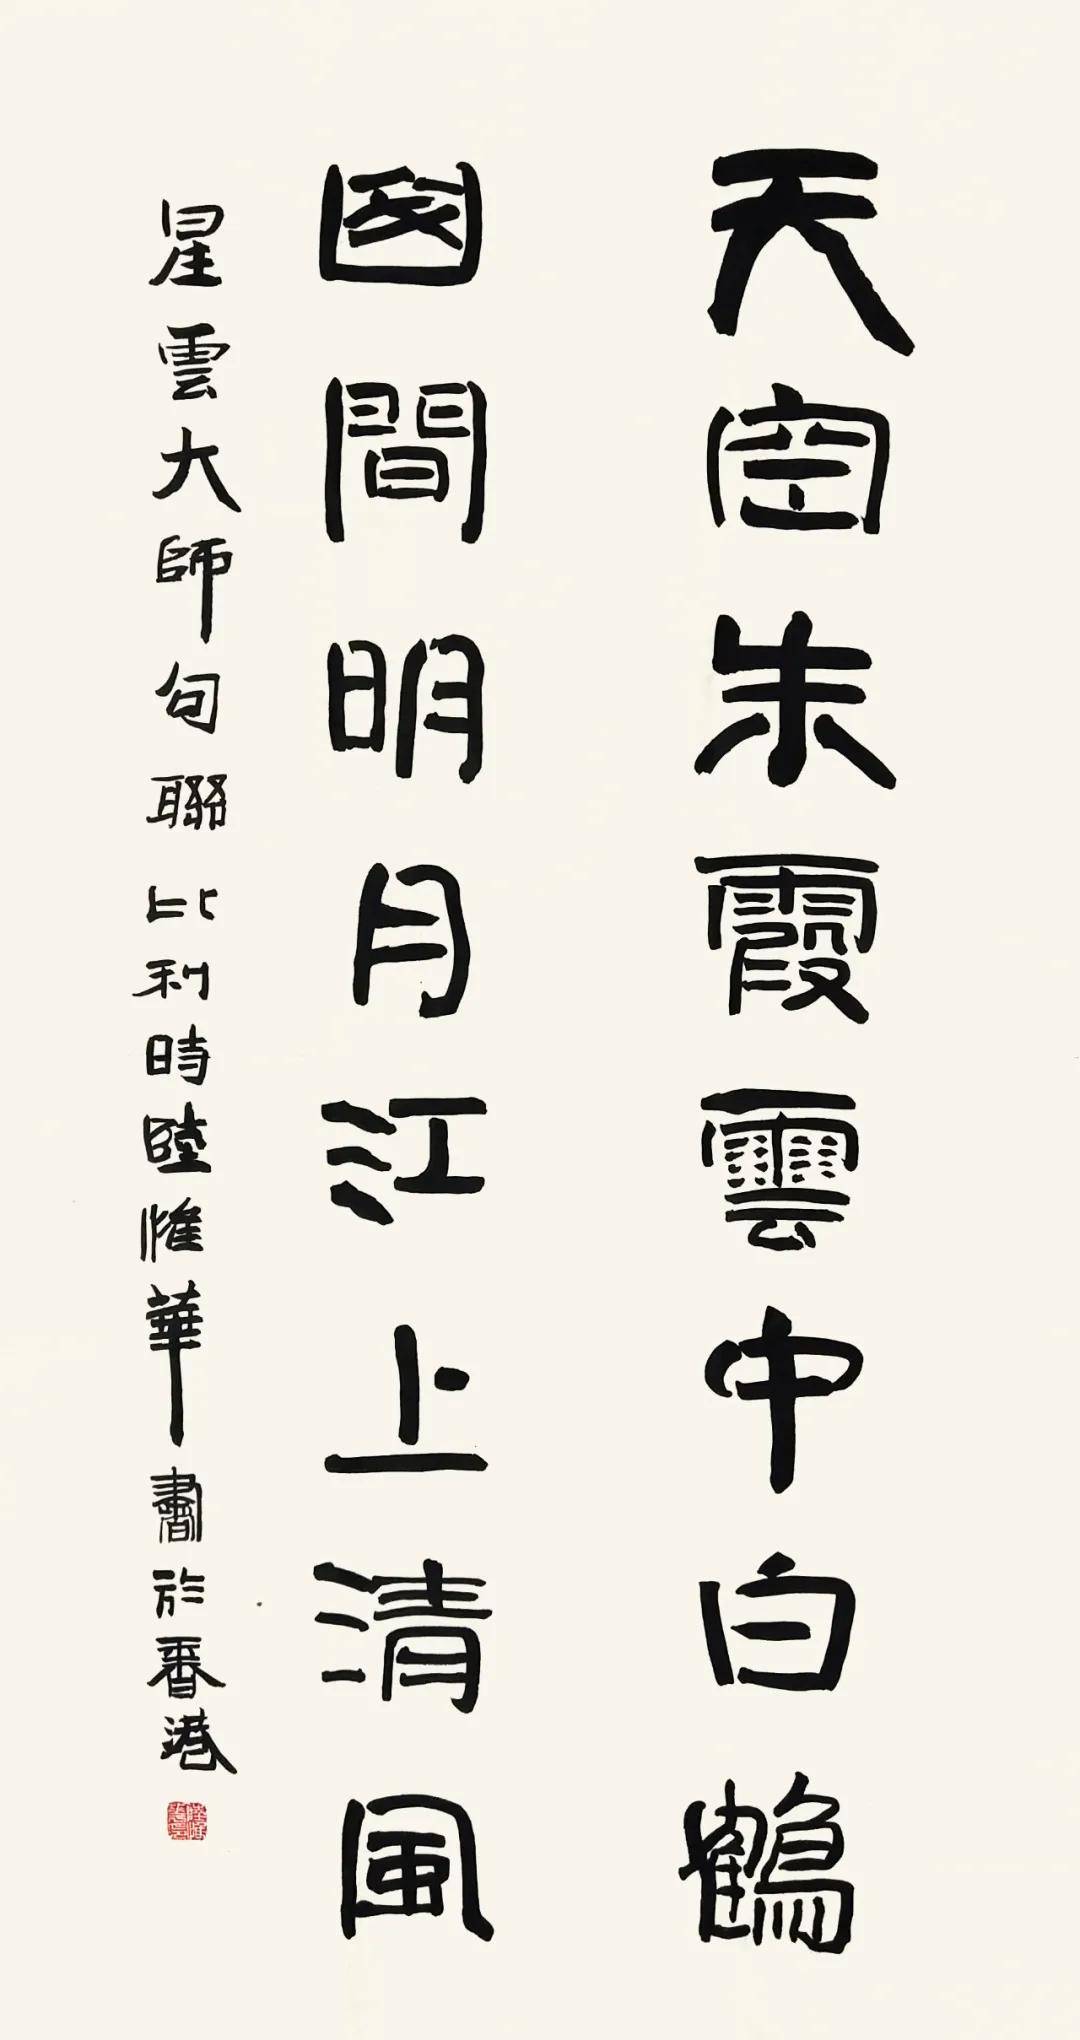 天空朱霞雲中白鶴
間明月江上清風
星雲大師句聯 比利時陸惟華書於香港